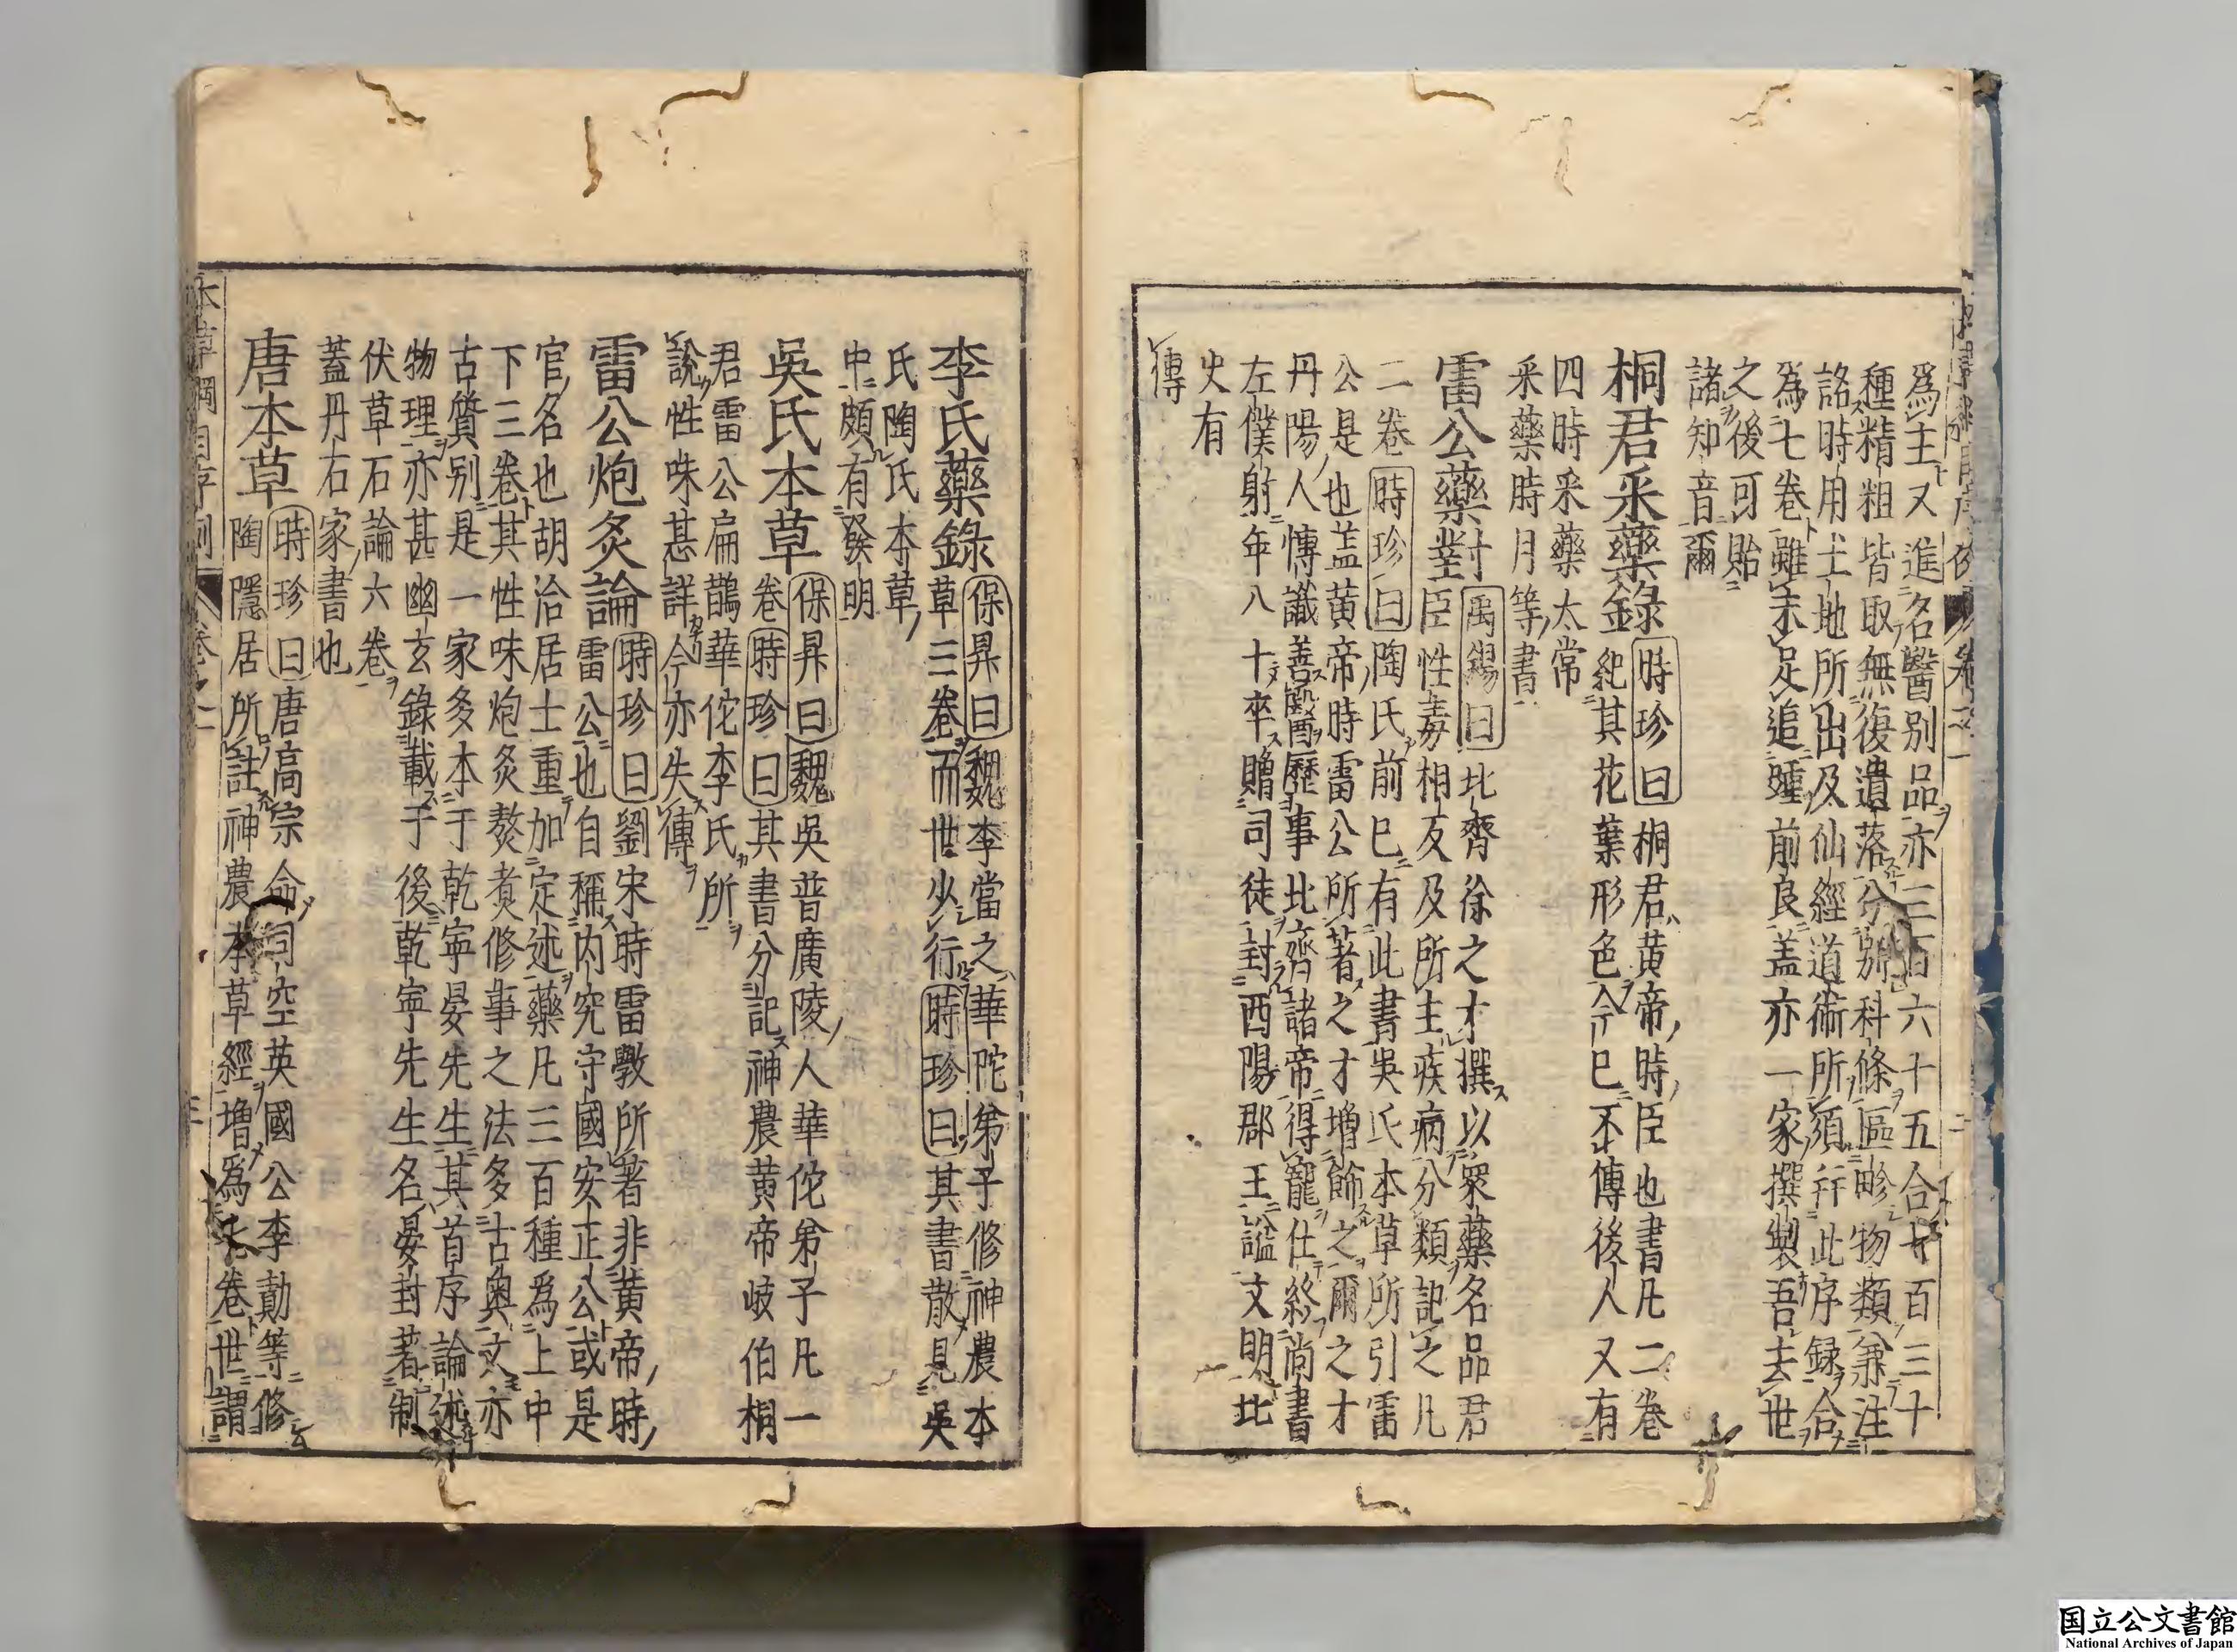 為主又進名醫別品亦三百六十五合七百三十
種精粗皆取無復遺落分別科條區畛物類兼注
詺時用土地所出及仙經道術所須幷此序録合
為七卷雖未足追踵前良盖亦一家撰製吾去世
之後可貽
諸知音爾
桐君采藥錄
時珍曰桐君黄帝時臣也書凡二卷
紀其花葉形色今已不傳後人又有
四時采藥太常
采藥時月等書
雷公藥對
禹錫曰北齊徐之才撰以衆藥名品君
臣性毒相反及所主疾病分類記之凡
二卷時珍曰陶氏前已有此書吳氏本草所引雷
公是也盖黄帝時雷公所著之才增飾之爾之才
丹陽人博識善醫歷事北齊諸帝得寵仕終尚書
左僕射年八十卒贈司徒封西陽郡王謚文明北
史有
傳
李氏藥錄
保昇曰魏李當之華陀弟子修神農本
草三卷而世少行時珍曰其書散見吳
氏陶氏本草
中頗有發明
吳氏本草
保昇曰魏吳普廣陵人華佗弟子凡一
卷時珍曰其書分記神農黄帝岐伯桐
君雷公扁鵲華佗李氏所
說性味甚詳今亦失傳
雷公炮炙論
時珍曰劉宋時雷斆所著非黄帝時
雷公也自稱内究守國安正公或是
官名也胡洽居士重加定述藥凡三百種為上中
下三卷其性味炮炙熬煮修事之法多古奥文亦
古質別是一家多本于乾寧晏先生其首序論述
物理亦甚幽玄錄載于後乾寧先生名晏封著制
伏草石論六卷
蓋丹石家書也
唐本草
時珍曰唐高宗命司空英國公李勣等修
陶隱居所註神農本草經增為七卷世謂
本草綱目序例 卷之一
国立公文書館
National Archives of Japan